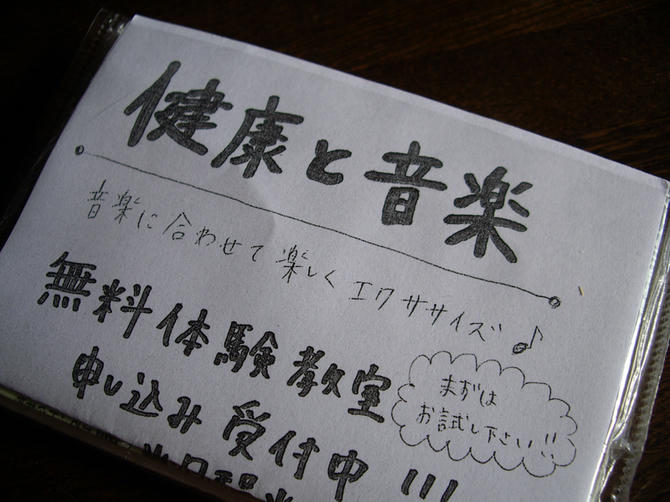 健康と音楽
音楽に合わせて楽しくエクササイズ♪
無料体験教室
申し込み受付中!!!
まずは
お試し下さい!!